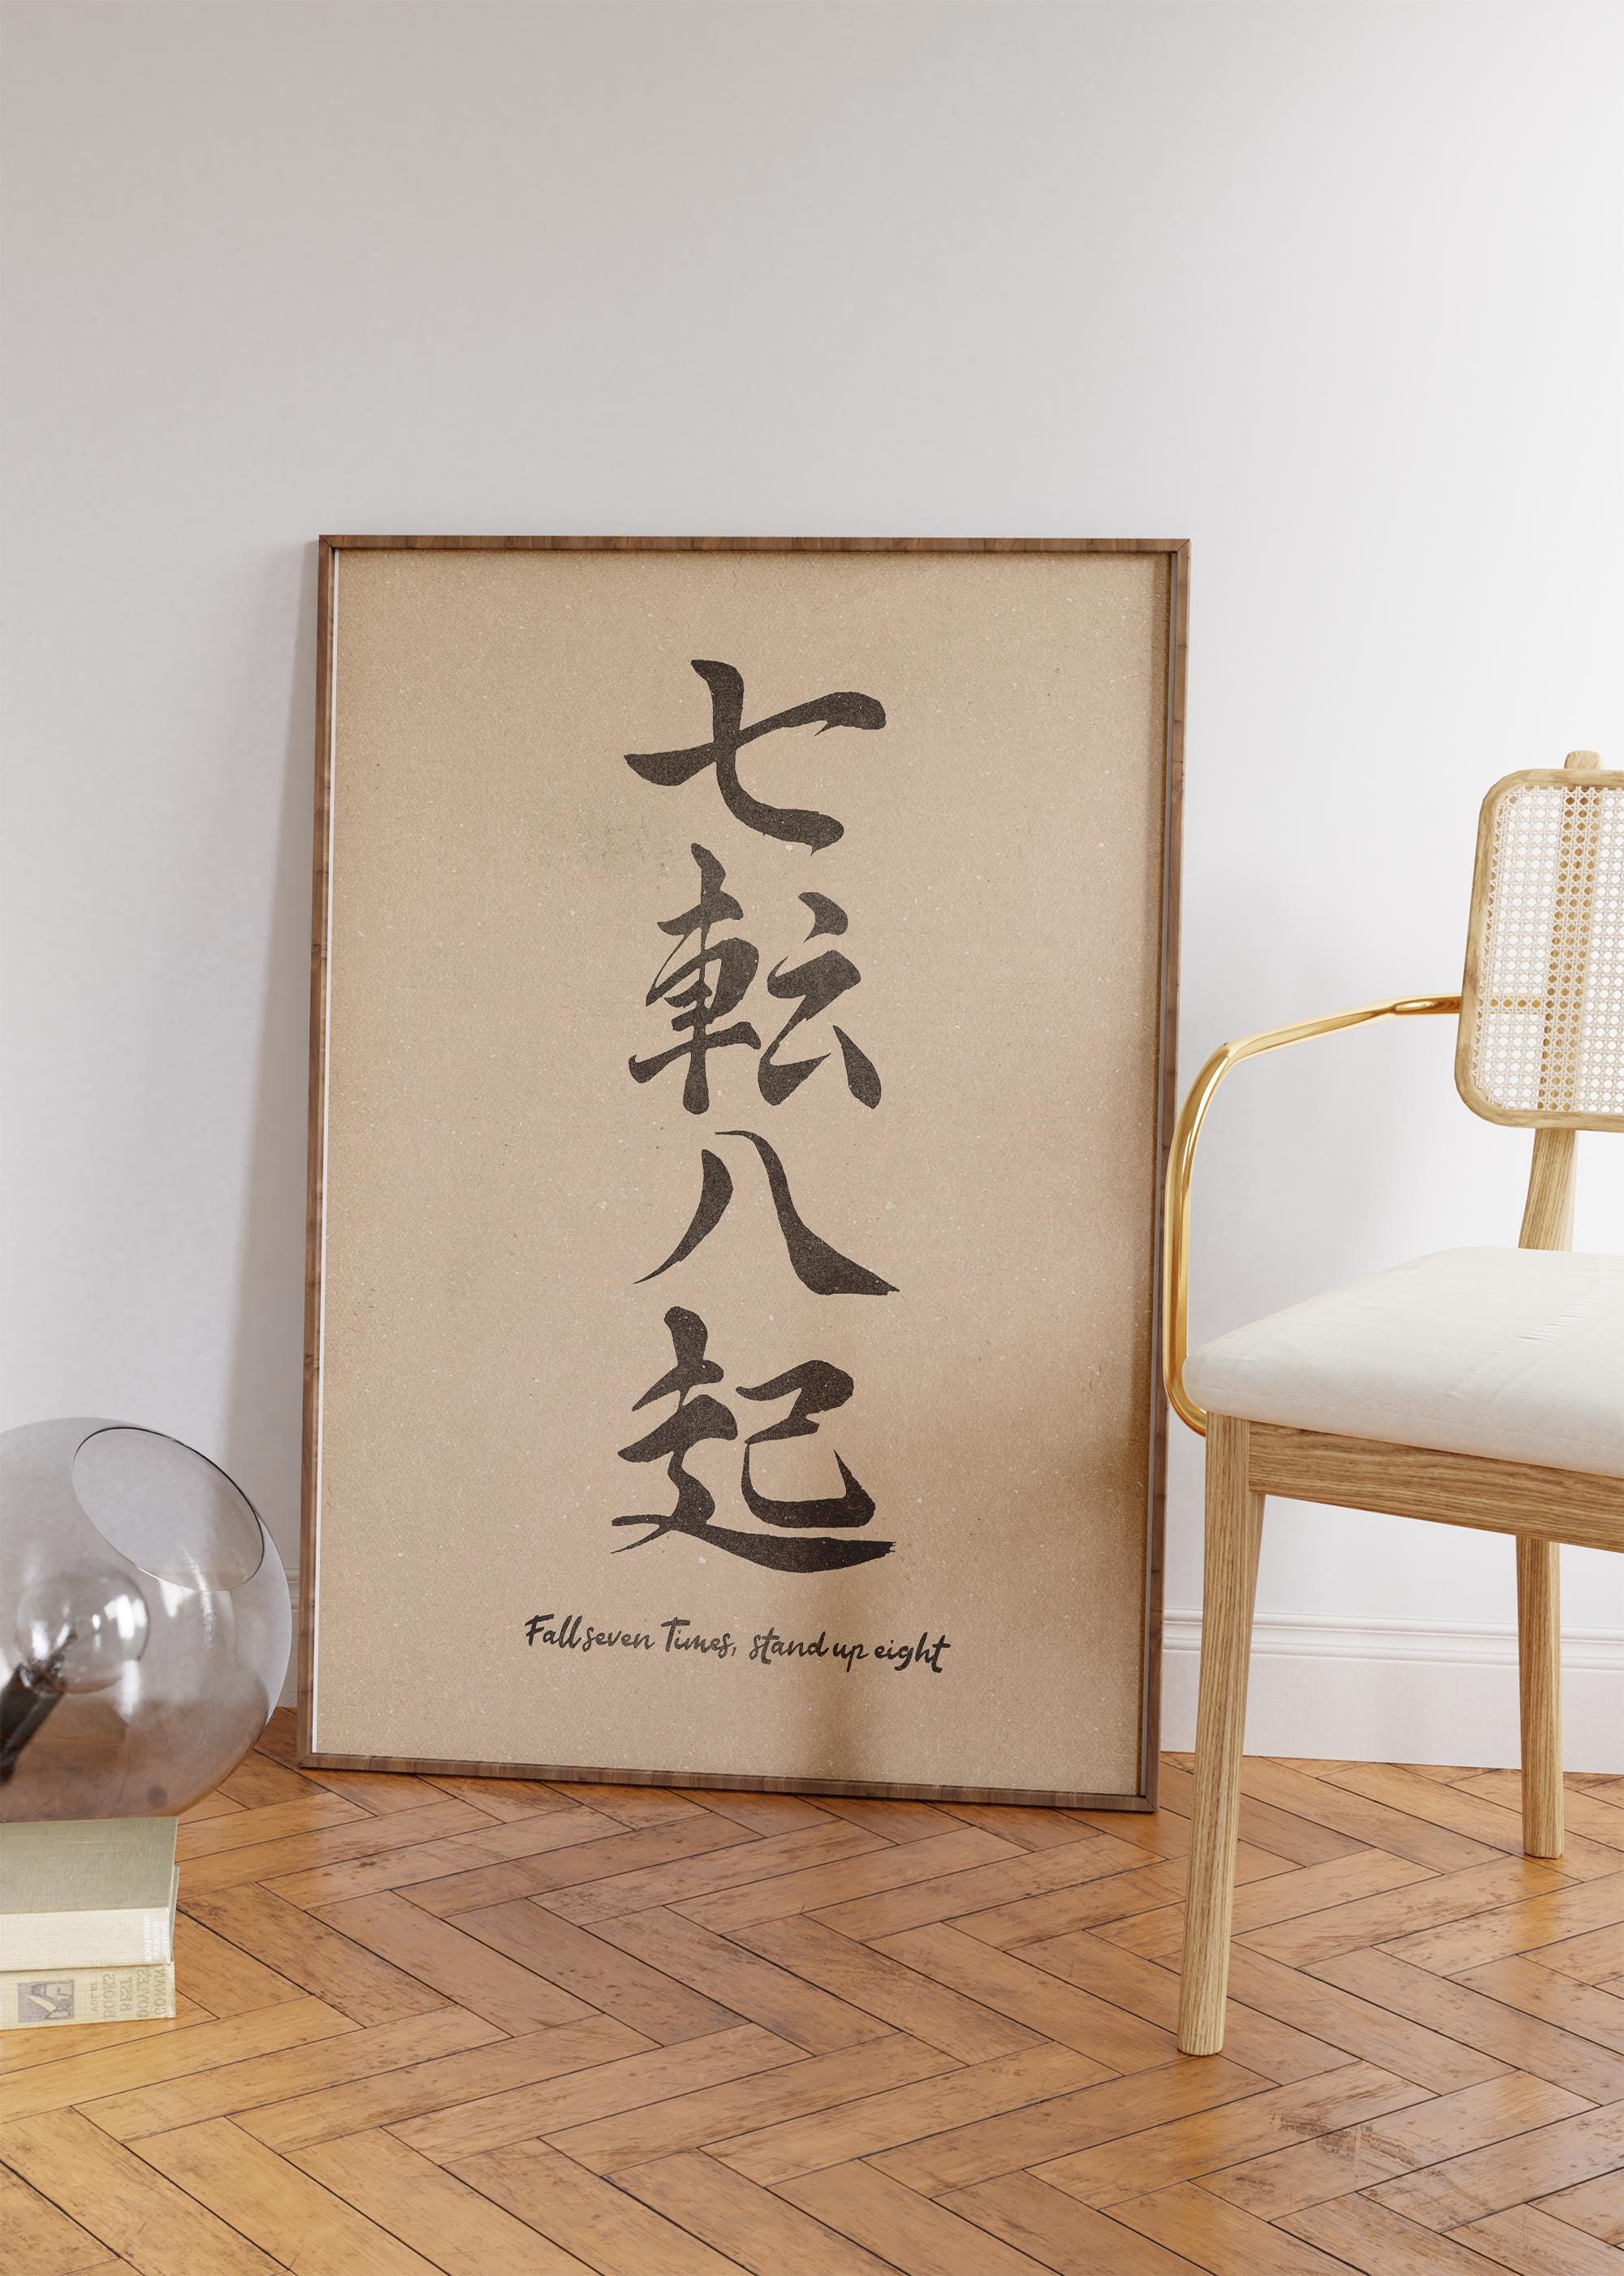 七転八起
Fall seven Times, stand up eight